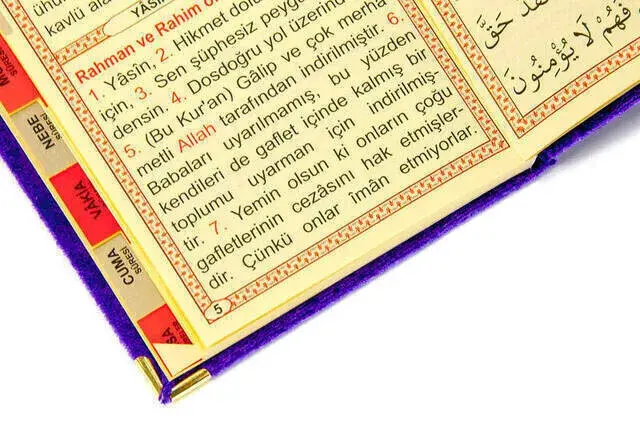 YÂSİN
Rahman ve Rahim
1. Yâsîn, 2. Hikmet
için, 3. Sen şüphesiz
densin. 4. Dosdoğru yol üzerinde
5. (Bu Kur'an) Gâlip ve çok merha-
metli Allah tarafından indirilmiştir. 6.
Babaları uyarılmamış, bu yüzden
kendileri de gaflet içinde kalmış bir
toplumu uyarman için indirilmiş-
tir. 7. Yemin olsun ki onların çoğu
gafletlerinin cezâsını hak etmişler-
dir. Çünkü onlar îmân etmiyorlar.
5
حَقَّ
فَهُمْ لَا يُؤْمِنُونَ
SÛRESİ
NEBE
SÛRESİ
VAKIA
CUMA
SÛRESİ